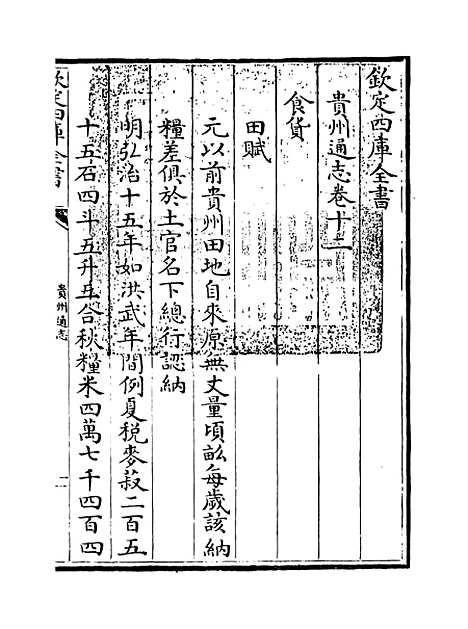 欽定四庫全書
貴州通志卷十二
食貨
田賦
元以前貴州田地自來原無丈量頃畝每歲該納
糧差俱於土官名下總行認納
明弘治十五年如洪武年間例夏稅麥菽二百五
十五石四斗五升五合秋糧米四萬七千四百四
欽定四庫全書
貴州通志
一